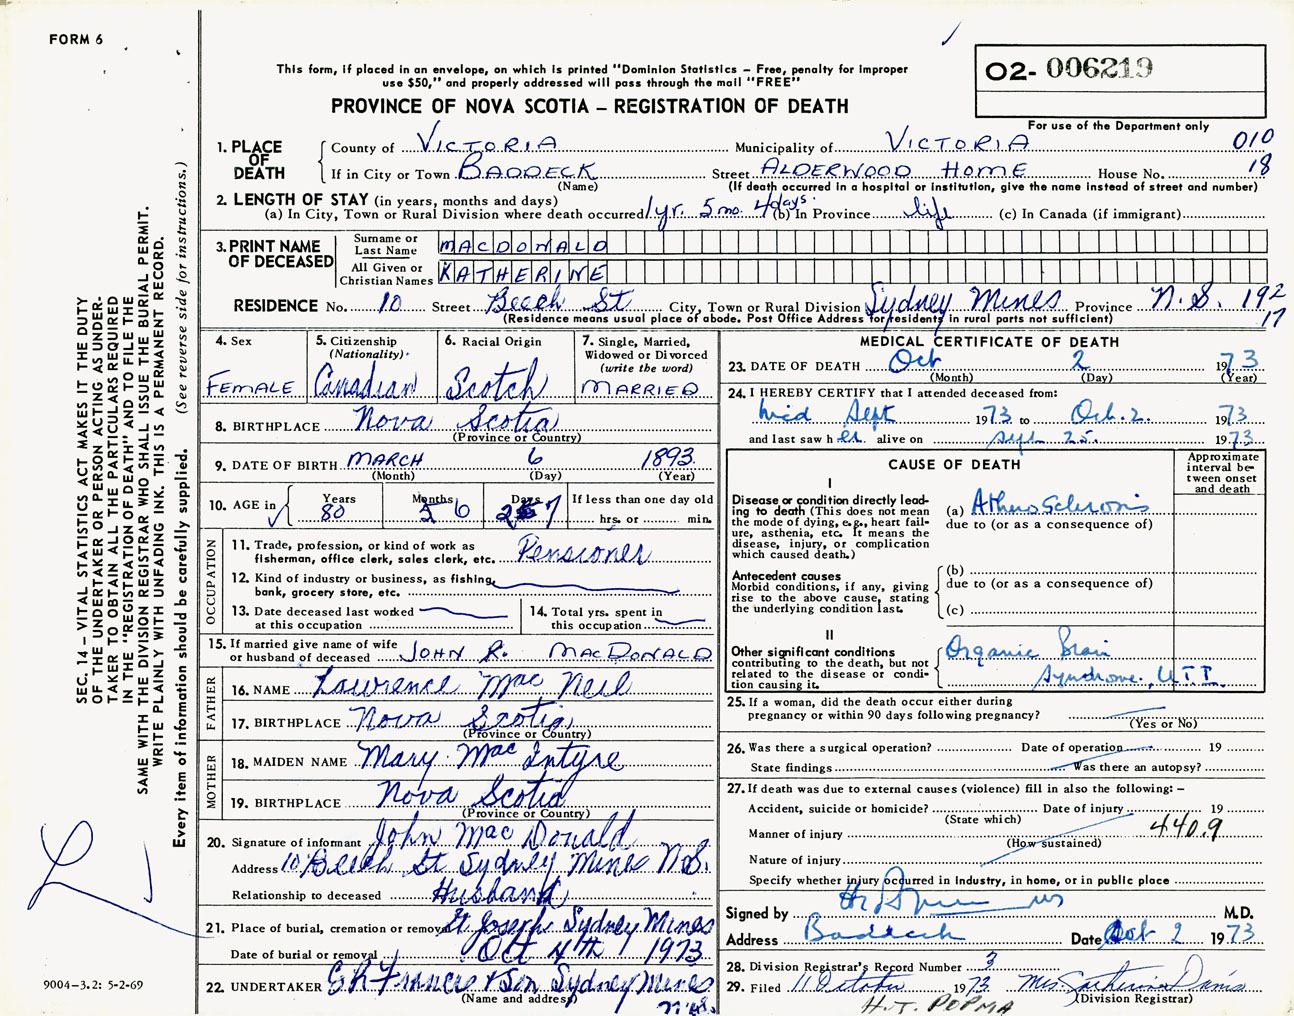 FORM 6
This form, if placed in an envelope, on which is printed "Dominion Statistics – Free, penalty for improper
use $50," and properly addressed will pass through the mail "FREE"
PROVINCE OF NOVA SCOTIA – REGISTRATION OF DEATH
02- 006219
For use of the Department only
1. PLACE OF DEATH
County of VICTORIA Municipality of VICTORIA 010
If in City or Town BADDECK Street ALDERWOOD HOME House No. 18
(Name) (If death occurred in a hospital or institution, give the name instead of street and number)
2. LENGTH OF STAY (in years, months and days)
(a) In City, Town or Rural Division where death occurred 1 yr. 5 mo. 4 days. (b) In Province life (c) In Canada (if immigrant)
3. PRINT NAME OF DECEASED
Surname or Last Name MACDONALD
All Given or Christian Names KATHERINE
RESIDENCE No. 10 Street Beech St City, Town or Rural Division Sydney Mines Province N.S. 192
(Residence means usual place of abode. Post Office Address for residents in rural parts not sufficient) 17
4. Sex
FEMALE
5. Citizenship
(Nationality)
Canadian
6. Racial Origin
Scotch
7. Single, Married,
Widowed or Divorced
(write the word)
MARRIED
8. BIRTHPLACE Nova Scotia
(Province or Country)
9. DATE OF BIRTH MARCH 6 1893
(Month) (Day) (Year)
10. AGE in
Years Months Days If less than one day old
80 6 hrs. or min.
OCCUPATION
11. Trade, profession, or kind of work as
fisherman, office clerk, sales clerk, etc. Pensioner
12. Kind of industry or business, as fishing,
bank, grocery store, etc.
13. Date deceased last worked
at this occupation
14. Total yrs. spent in
this occupation
15. If married give name of wife
or husband of deceased JOHN R. MACDONALD
FATHER
16. NAME Lawrence MacNeil
17. BIRTHPLACE Nova Scotia
(Province or Country)
MOTHER
18. MAIDEN NAME Mary MacIntyre
19. BIRTHPLACE Nova Scotia
(Province or Country)
20. Signature of informant John MacDonald
Address 10 Beech St Sydney Mines N.S.
Relationship to deceased Husband
21. Place of burial, cremation or removal St Joseph Sydney Mines
Date of burial or removal Oct 4th 1973
22. UNDERTAKER Francis & Son Sydney Mines
(Name and address) N.S.
MEDICAL CERTIFICATE OF DEATH
23. DATE OF DEATH Oct 2 1973
(Month) (Day) (Year)
24. I HEREBY CERTIFY that I attended deceased from:
mid Sept 1973 to Oct. 2. 1973
and last saw her alive on Sept 25. 1973
CAUSE OF DEATH
Approximate
interval be-
tween onset
and death
I
Disease or condition directly lead-
ing to death (This does not mean
the mode of dying, e.g., heart fail-
ure, asthenia, etc. It means the
disease, injury, or complication
which caused death.)
(a) Atherosclerosis
due to (or as a consequence of)
Antecedent causes
Morbid conditions, if any, giving
rise to the above cause, stating
the underlying condition last.
(b)
due to (or as a consequence of)
(c)
II
Other significant conditions
contributing to the death, but not
related to the disease or condi-
tion causing it.
Organic Brain
Syndrome, U.T.I.
25. If a woman, did the death occur either during
pregnancy or within 90 days following pregnancy?
(Yes or No)
26. Was there a surgical operation? Date of operation 19
State findings Was there an autopsy?
27. If death was due to external causes (violence) fill in also the following: –
Accident, suicide or homicide? Date of injury 19
(State which)
Manner of injury 440.9
(How sustained)
Nature of injury
Specify whether injury occurred in industry, in home, or in public place
Signed by M.D.
Address Baddeck Date Oct 2 1973
28. Division Registrar's Record Number 3
29. Filed 11 October 1973 Mrs. Davis
(Division Registrar)
H.T. POPMA
SEC. 14 – VITAL STATISTICS ACT MAKES IT THE DUTY
OF THE UNDERTAKER OR PERSON ACTING AS UNDER-
TAKER TO OBTAIN ALL THE PARTICULARS REQUIRED
IN THE "REGISTRATION OF DEATH" AND TO FILE THE
SAME WITH THE DIVISION REGISTRAR WHO SHALL ISSUE THE BURIAL PERMIT.
WRITE PLAINLY WITH UNFADING INK. THIS IS A PERMANENT RECORD.
Every item of information should be carefully supplied. (See reverse side for instructions.)
9004-3.2: 5-2-69